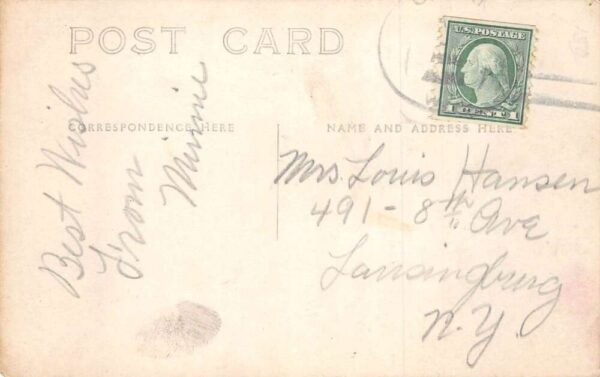 POST CARD
U.S. POSTAGE
1 CENT 1
CORRESPONDENCE HERE
NAME AND ADDRESS HERE
Best Wishes
From
Minnie
Mrs Louis Hansen
491 - 8th Ave
Lansingburg
N.Y.